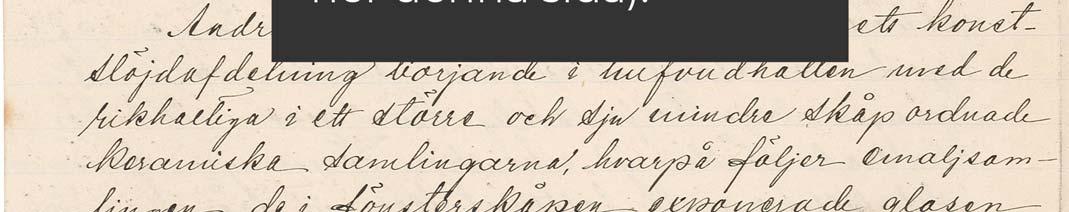 ner denna sida).
Andr ets konst-
slöjdafdelning börjande i hufvudhallen med de
rikhaltiga i ett större och sju mindre skåp ordnade
keramiska samlingarna, hvarpå följer emaljsam-
lingen, de i fönsterskåpen exponerade glasen